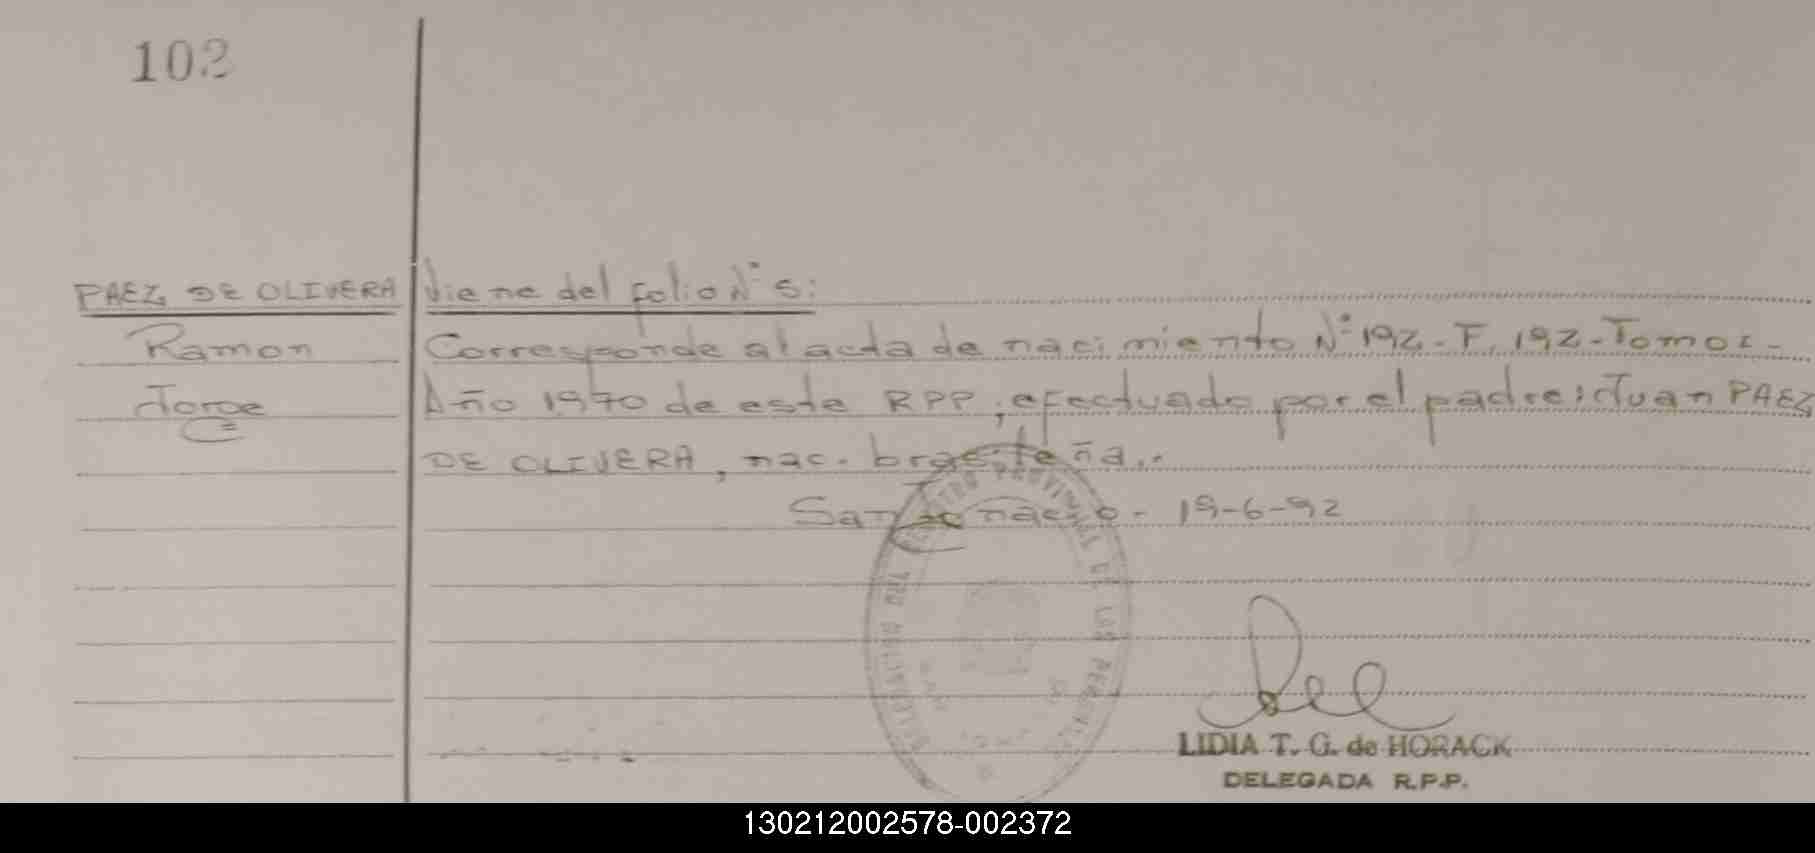 102
PAEZ DE OLIVERA
Ramon
Jorge
Viene del folio N° 5:
Corresponde al acta de nacimiento N° 192 - F. 192 - Tomo I -
Año 1970 de este RPP, efectuado por el padre: Juan PAEZ
DE OLIVERA, nac. brasileña.-
San Ignacio - 19-6-92
REGISTRO PROVINCIAL DE LAS PERSONAS
LIDIA T. G. de HORACK
DELEGADA R.P.P.
130212002578-002372